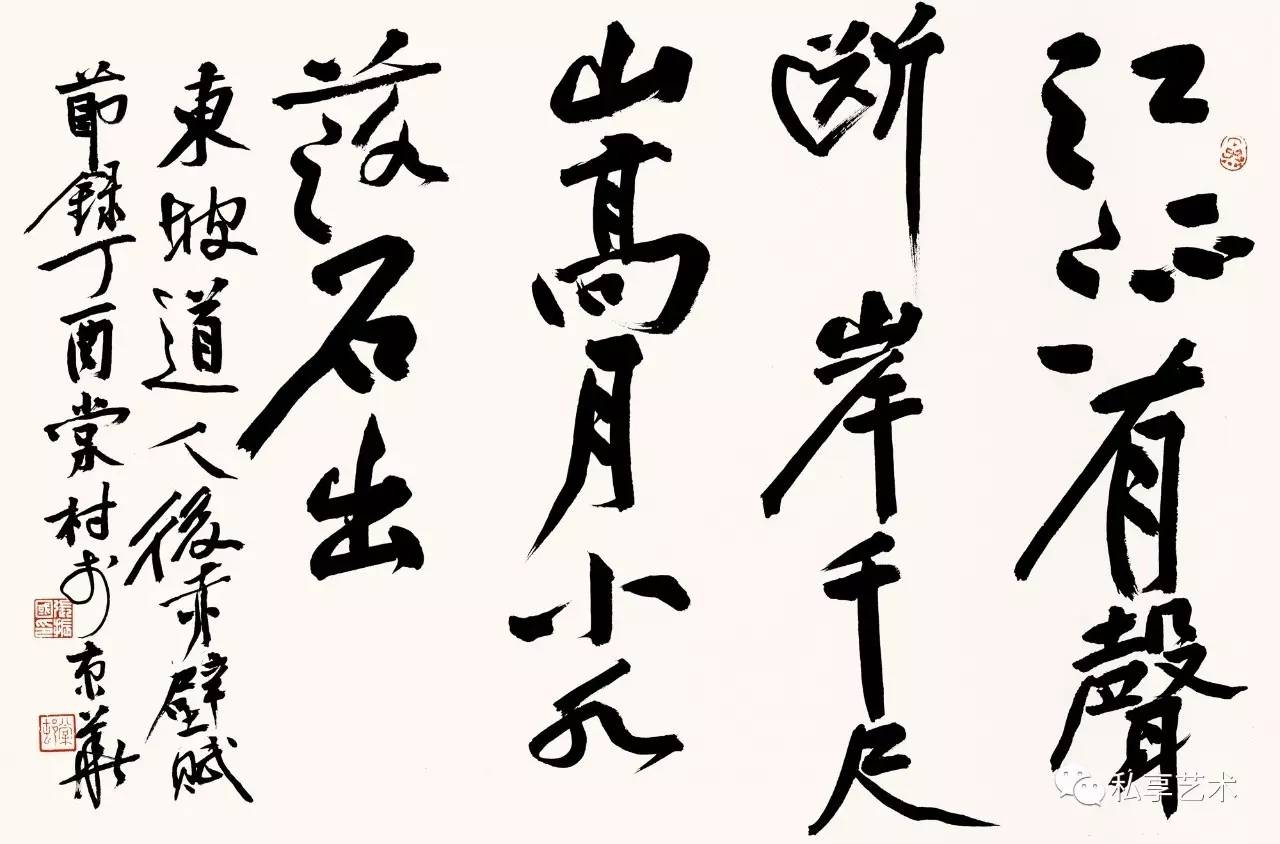 江流有聲
断岸千尺
山高月小水
落石出
東坡道人後赤壁賦
節録丁酉棠村於京華
棠村
私享艺术